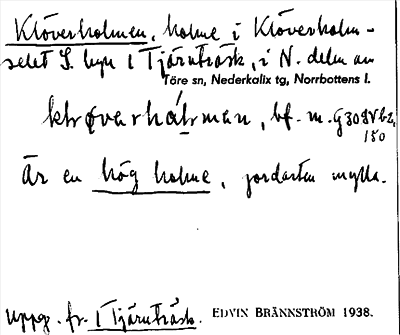 Klöverholmen, holme i Klöverholm-
selet S. byn 1 Tjärnträsk, i N. delen av
Töre sn, Nederkalix tg, Norrbottens l.
bf. m.
Är en hög holme, jordarten mylla.
Uppg. fr. 1 Tjärnträsk. EDVIN BRÄNNSTRÖM 1938.